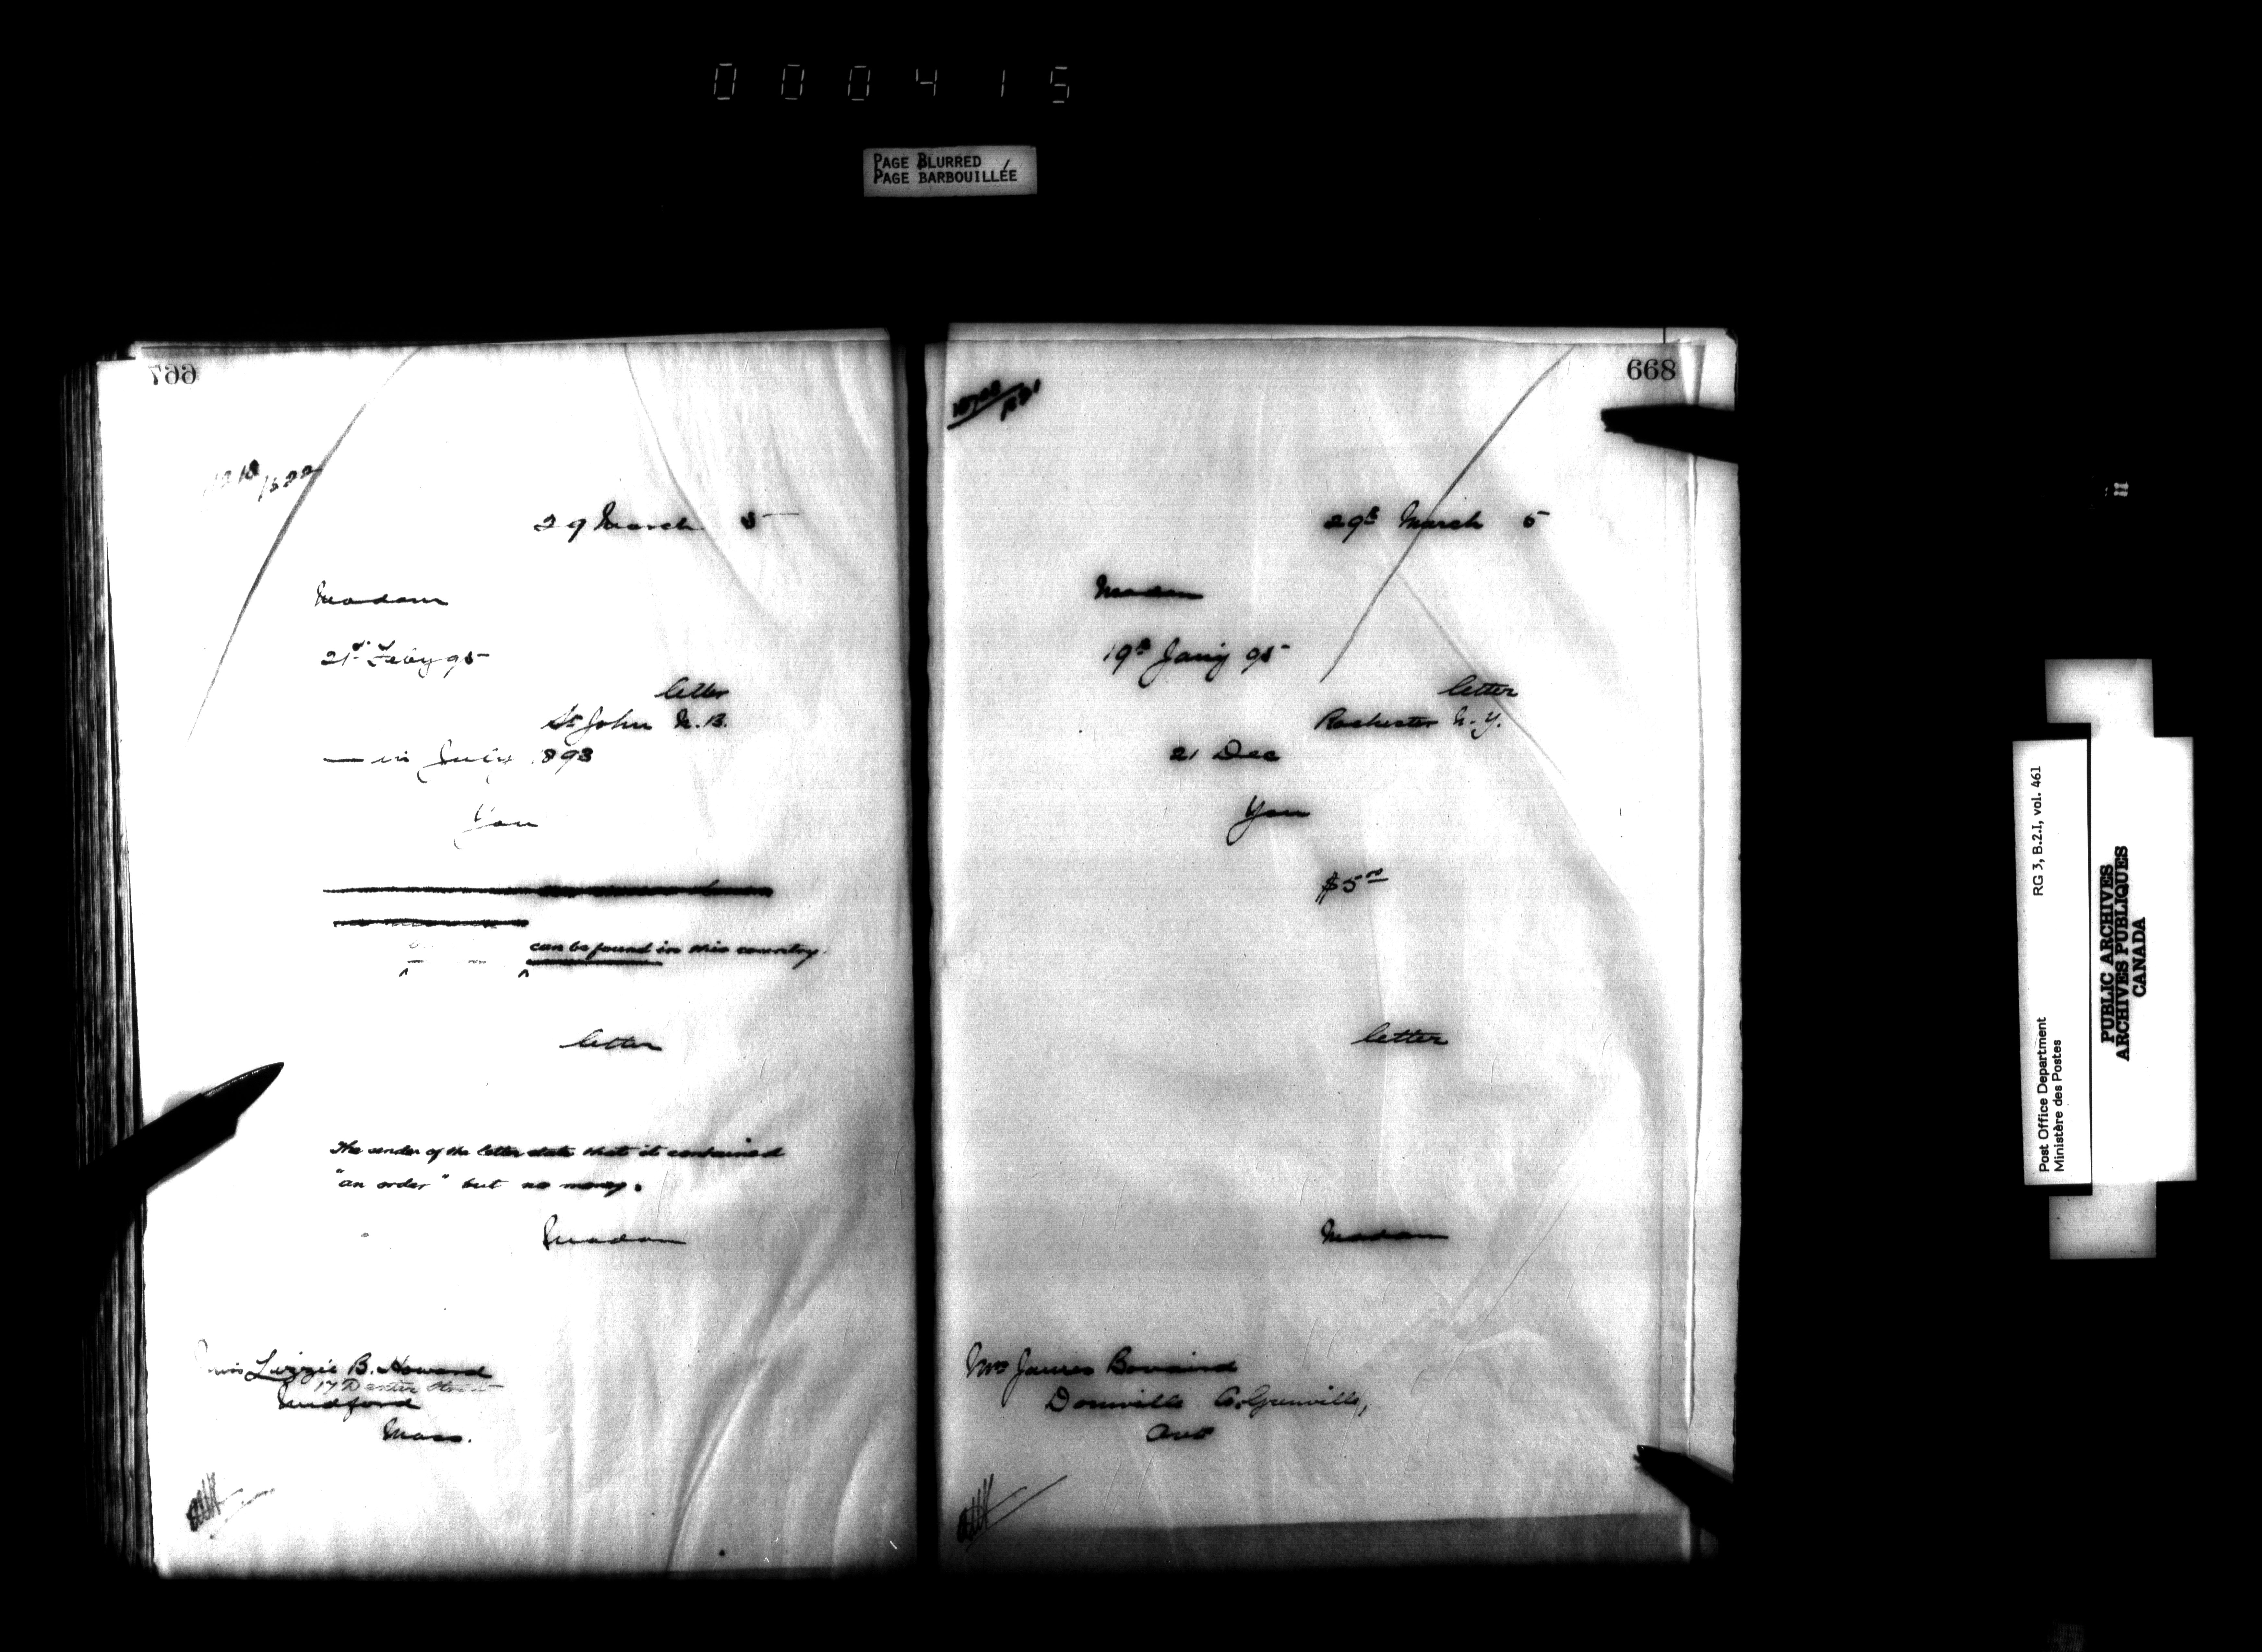 000415
PAGE BLURRED
PAGE BARBOUILLÉE
667
29 March 5
Madam
21st Feby 95
letter
St John N.B.
— in July 893
You
can be found in this country.
letter
The sender of the letter state that it contained
"an order" but no money.
Madam
Miss Lizzie B. Howard
17 Dexter Street
Medford
Mass.
668
29th March 5
Madam
19th Jany 95
letter
Rochester N.Y.
21 Dec
You
$5.00
letter
Madam
Mrs James Bovaird
Domville Co. Grenville,
Ont
Post Office Department RG 3, B.2.I, vol. 461
Ministère des Postes
PUBLIC ARCHIVES
ARCHIVES PUBLIQUES
CANADA